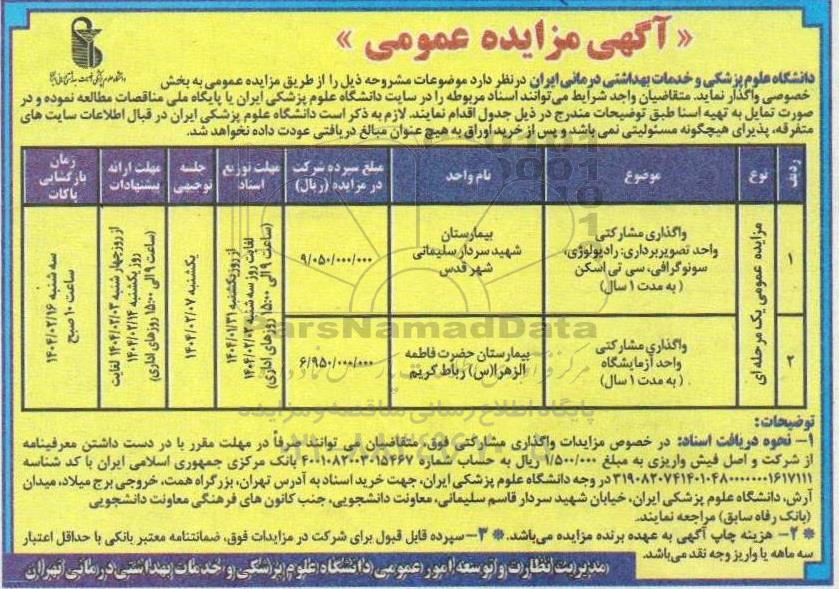 « آگهی مزایده عمومی »
دانشگاه علوم پزشکی و خدمات بهداشتی درمانی ایران درنظر دارد موضوعات مشروحه ذیل را از طریق مزایده عمومی به بخش
خصوصی واگذار نماید. متقاضیان واجد شرایط می‌توانند اسناد مربوطه را در سایت دانشگاه علوم پزشکی ایران یا پایگاه ملی مناقصات مطالعه نموده و در
صورت تمایل به تهیه اسنا طبق توضیحات مندرج در ذیل جدول اقدام نمایند. لازم به ذکر است دانشگاه علوم پزشکی ایران در قبال اطلاعات سایت های
متفرقه، پذیرای هیچگونه مسئولیتی نمی باشد و پس از خرید اوراق به هیچ عنوان مبالغ دریافتی عودت داده نخواهد شد.
ردیف
نوع
موضوع
نام واحد
مبلغ سپرده شرکت
در مزایده (ریال)
مهلت توزیع
اسناد
جلسه
توجیهی
مهلت ارائه
پیشنهادات
زمان
بازگشایی
پاکات
۱
مزایده عمومی یک مرحله ای
واگذاری مشارکتی
واحد تصویربرداری: رادیولوژی،
سونوگرافی، سی تی اسکن
( به مدت ۱ سال)
بیمارستان
شهید سردار سلیمانی
شهر قدس
۹/۰۵۰/۰۰۰/۰۰۰
از روز یکشنبه ۱۴۰۴/۰۱/۳۱
لغایت روز سه شنبه ۱۴۰۴/۰۲/۰۲
(ساعت ۹ الی ۱۵:۰۰ روزهای اداری)
یکشنبه ۱۴۰۴/۰۲/۰۷
از روز چهارشنبه ۱۴۰۴/۰۲/۰۳ لغایت
روز یکشنبه ۱۴۰۴/۰۲/۱۴
(ساعت ۹ الی ۱۵:۰۰ روزهای اداری)
سه شنبه ۱۴۰۴/۰۲/۱۶
ساعت ۱۰ صبح
۲
واگذاری مشارکتی
واحد آزمایشگاه
( به مدت ۱ سال)
بیمارستان حضرت فاطمه
الزهرا(س) رباط کریم
۶/۹۵۰/۰۰۰/۰۰۰
ParsNamadData
پایگاه اطلاع رسانی مناقصه و مزایده
توضیحات:
۱- نحوه دریافت اسناد: در خصوص مزایدات واگذاری مشارکتی فوق، متقاضیان می توانند صرفاً در مهلت مقرر با در دست داشتن معرفینامه
از شرکت و اصل فیش واریزی به مبلغ ۱/۵۰۰/۰۰۰ ریال به حساب شماره ۴۰۰۱۰۸۲۰۰۳۰۱۵۴۶۷ بانک مرکزی جمهوری اسلامی ایران با کد شناسه
۳۱۹۰۸۲۰۷۴۱۴۰۱۰۴۸۰۰۰۰۰۰۰۱۶۱۷۱۱۱ در وجه دانشگاه علوم پزشکی ایران، جهت خرید اسناد به آدرس تهران، بزرگراه همت، خروجی برج میلاد، میدان
آرش، دانشگاه علوم پزشکی ایران، خیابان شهید سردار قاسم سلیمانی، معاونت دانشجویی، جنب کانون های فرهنگی معاونت دانشجویی
(بانک رفاه سابق) مراجعه نمایند.
* ۲- هزینه چاپ آگهی به عهده برنده مزایده می‌باشد. * ۳- سپرده قابل قبول برای شرکت در مزایدات فوق، ضمانتنامه معتبر بانکی با حداقل اعتبار
سه ماهه یا واریز وجه نقد می‌باشد.
مدیریت نظارت و توسعه امور عمومی دانشگاه علوم پزشکی و خدمات بهداشتی درمانی تهران